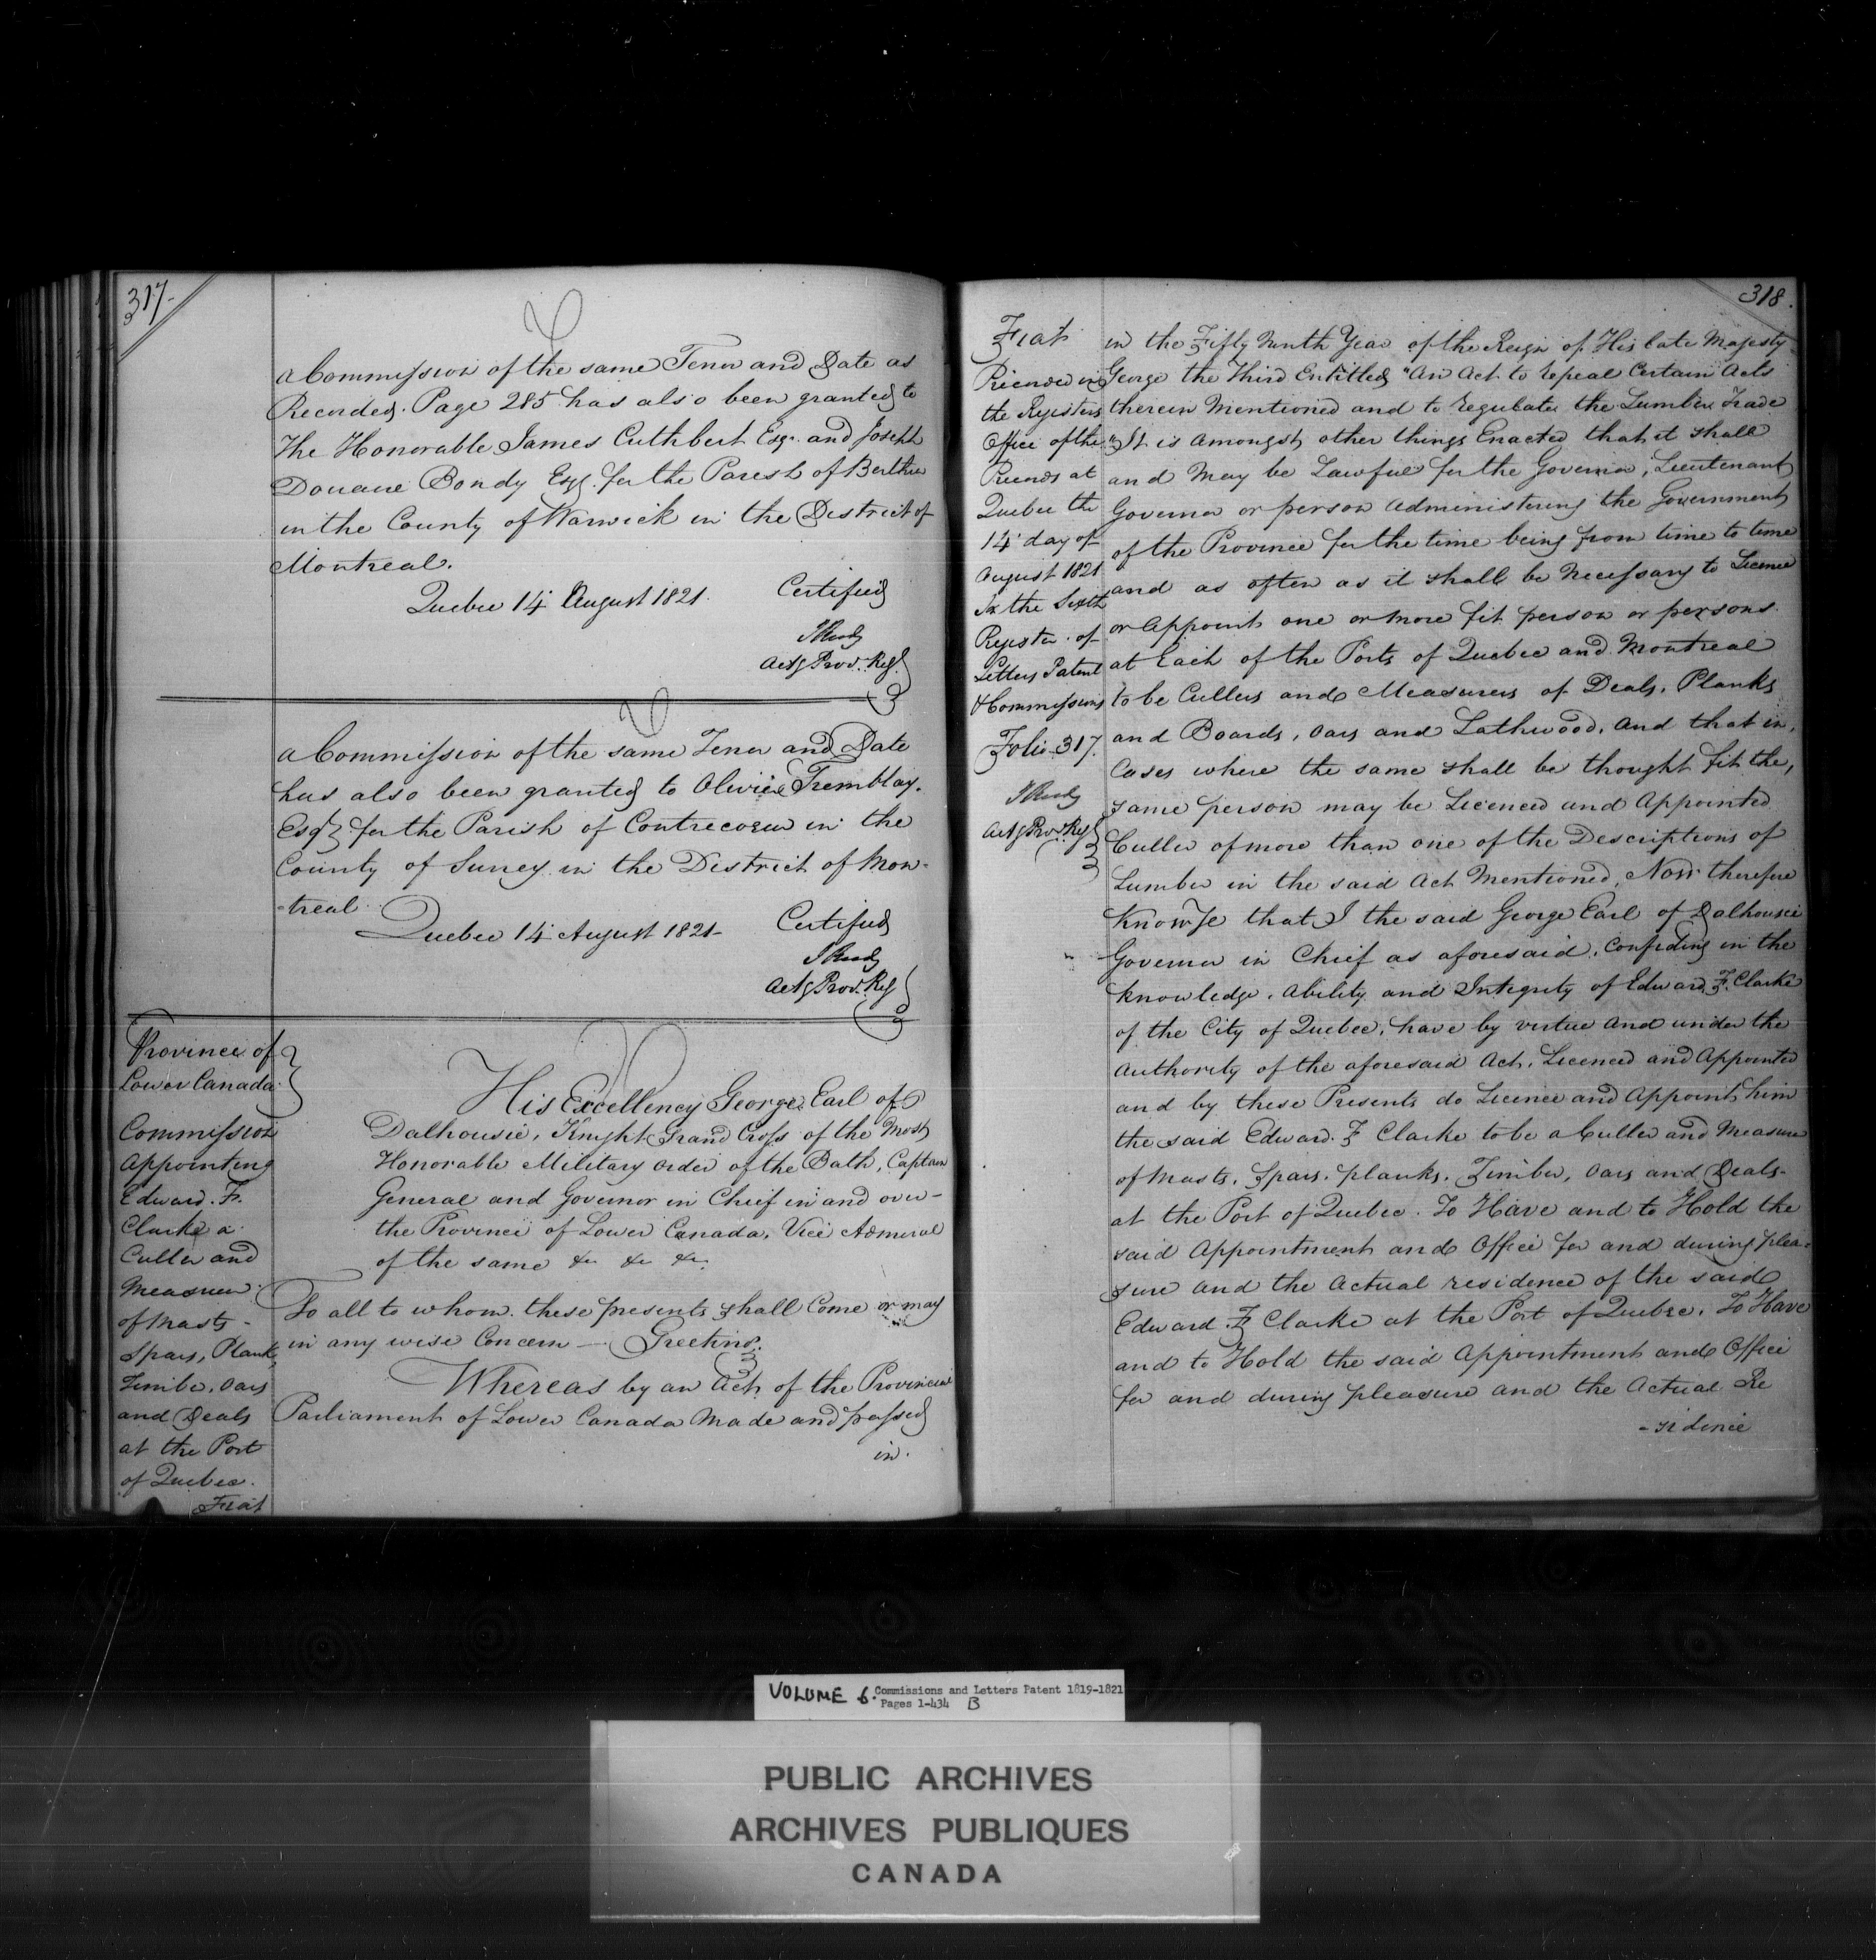 317.
a Commission of the same Tenor and Date as
Recorded Page 285 has also been granted to
The Honorable James Cuthbert Esqr. and Joseph
Douaire Bondy Esqr. for the Parish of Berthier
in the County of Warwick in the District of
Montreal.
Quebec 14 August 1821. Certified
Actg Prov. Reg.
a Commission of the same Tenor and Date
has also been granted to Olivier Tremblay.
Esqr for the Parish of Contrecoeur in the
County of Surrey in the District of Mon-
-treal
Quebec 14 August 1821- Certified
Actg Prov. Reg
Province of
Lower Canada
Commission
Appointing
Edward. F.
Clarke a
Culler and
Measurer
of Masts -
Spars, Plank,
Timber, Oars
and Deals
at the Port
of Quebec.
Fiat
His Excellency George Earl of
Dalhousie, Knight Grand Cross of the Most
Honorable Military Order of the Bath, Captain
General and Governor in Chief in and over-
the Province of Lower Canada, Vice Admiral
of the same &c &c &c.
To all to whom these presents shall Come or may
in any wise Concern — Greeting.
Whereas by an Act of the Provincial
Parliament of Lower Canada Made and passed
in.
318.
Fiat
Recorded in
the Registers
Office of the
Records at
Quebec the
14 day of
August 1821
In the Sixth
Register of
Letters Patent
& Commissions
Folio 317.
Actg Prov. Reg
in the Fifty Ninth Year of the Reign of His late Majesty
George the Third Entitled "An Act to repeal Certain Acts
therein Mentioned and to regulate the Lumber Trade
"It is Amongst other things Enacted that it shall
and May be Lawful for the Governor, Lieutenant
Governor or person Administering the Government
of the Province for the time being from time to time
and as often as it shall be Necessary to Licence
or Appoint one or more fit person or persons
at Each of the Ports of Quebec and Montreal
to be Cullers and Measurers of Deals, Planks
and Boards, Oars and Lathwood, and that in,
Cases where the same shall be thought fit the,
same person may be Licenced and Appointed
Culler of more than one of the Descriptions of
Lumber in the said Act Mentioned, Now therefore
Know Ye that I the said George Earl of Dalhousie
Governor in Chief as aforesaid, Confiding in the
Knowledge, Ability and Integrity of Edward F. Clarke
of the City of Quebec, have by virtue and under the
Authority of the aforesaid Act, Licenced and Appointed
and by these Presents do Licence and Appoint him
the said Edward. F Clarke to be a Culler and Measurer
of Masts, Spars, planks, Timber, Oars and Deals-
at the Port of Quebec. To Have and to Hold the
said Appointment and Office for and during plea-
sure and the Actual residence of the said
Edward. F Clarke at the Port of Quebec. To Have
and to Hold the said Appointment and Office
for and during pleasure and the Actual Re
-sidence
VOLUME 6. Commissions and Letters Patent 1819-1821
Pages 1-434 B
PUBLIC ARCHIVES
ARCHIVES PUBLIQUES
CANADA